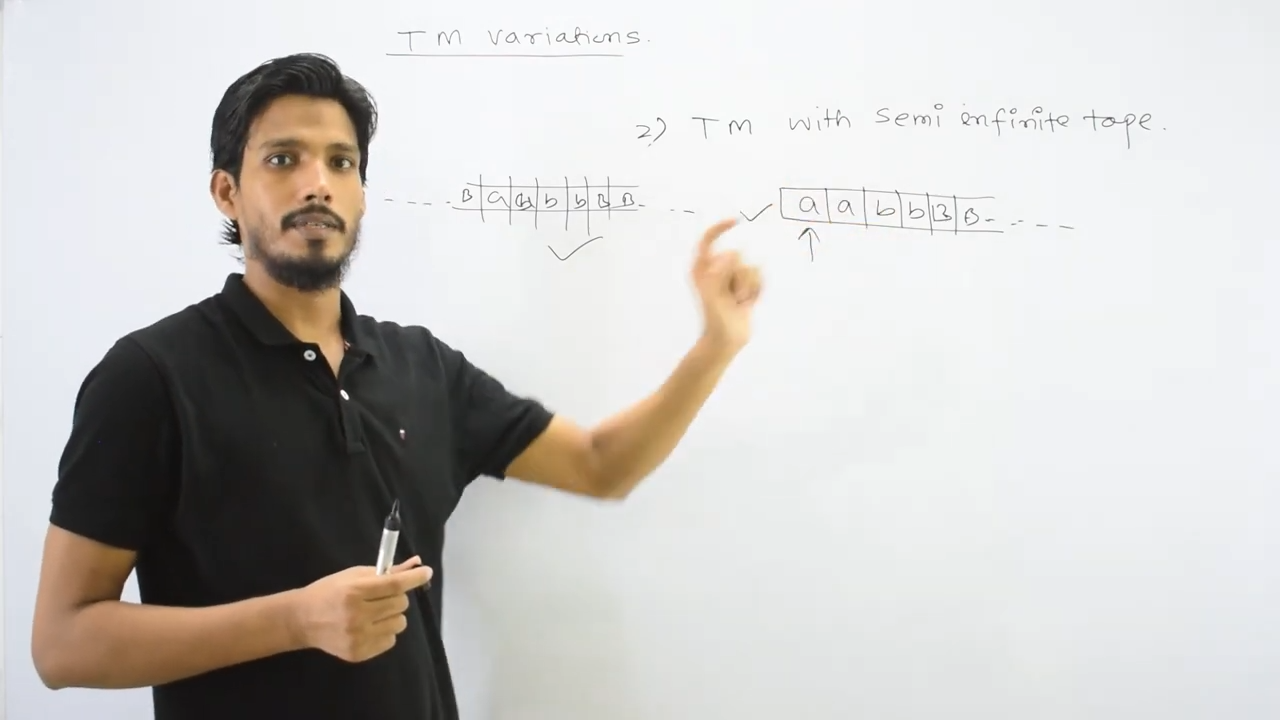 TM variations.
2) TM with semi infinite tape.
- - - - B a a b b B B - - -
a a b b B B - - - - -